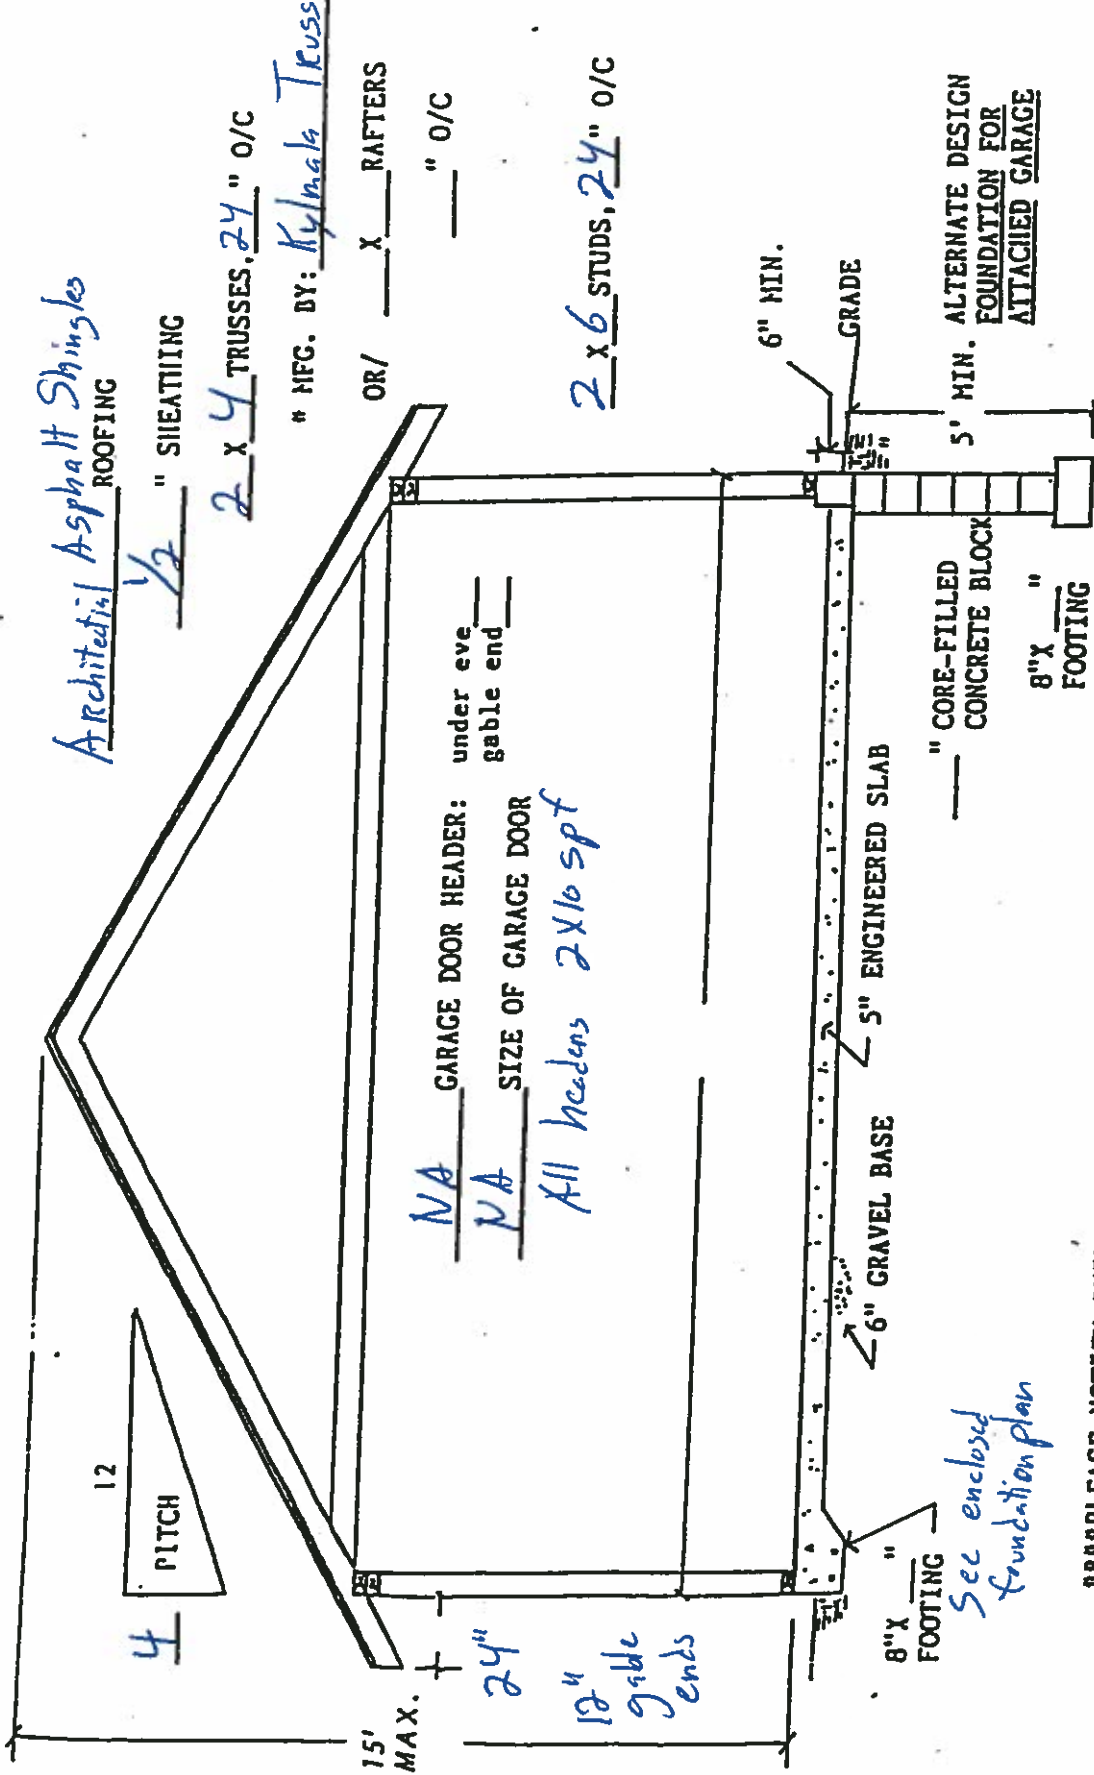 Architectial Asphalt Shingles
ROOFING
1/2 " SHEATHING
2 X 4 TRUSSES, 24 " O/C
" MFG. BY: Kylmala Truss
OR/ ___ X ___ RAFTERS
___ " O/C
2 X 6 STUDS, 24 " O/C
12
4 PITCH
15'
MAX.
24"
12"
gable
ends
NA GARAGE DOOR HEADER: under eve ___
gable end ___
NA SIZE OF GARAGE DOOR
All headers 2X10 spf
6" MIN.
GRADE
5' MIN.
ALTERNATE DESIGN
FOUNDATION FOR
ATTACHED GARAGE
___ " CORE-FILLED
CONCRETE BLOCK
8"X ___ "
FOOTING
5" ENGINEERED SLAB
6" GRAVEL BASE
8"X ___ "
FOOTING
See enclosed
foundation plan